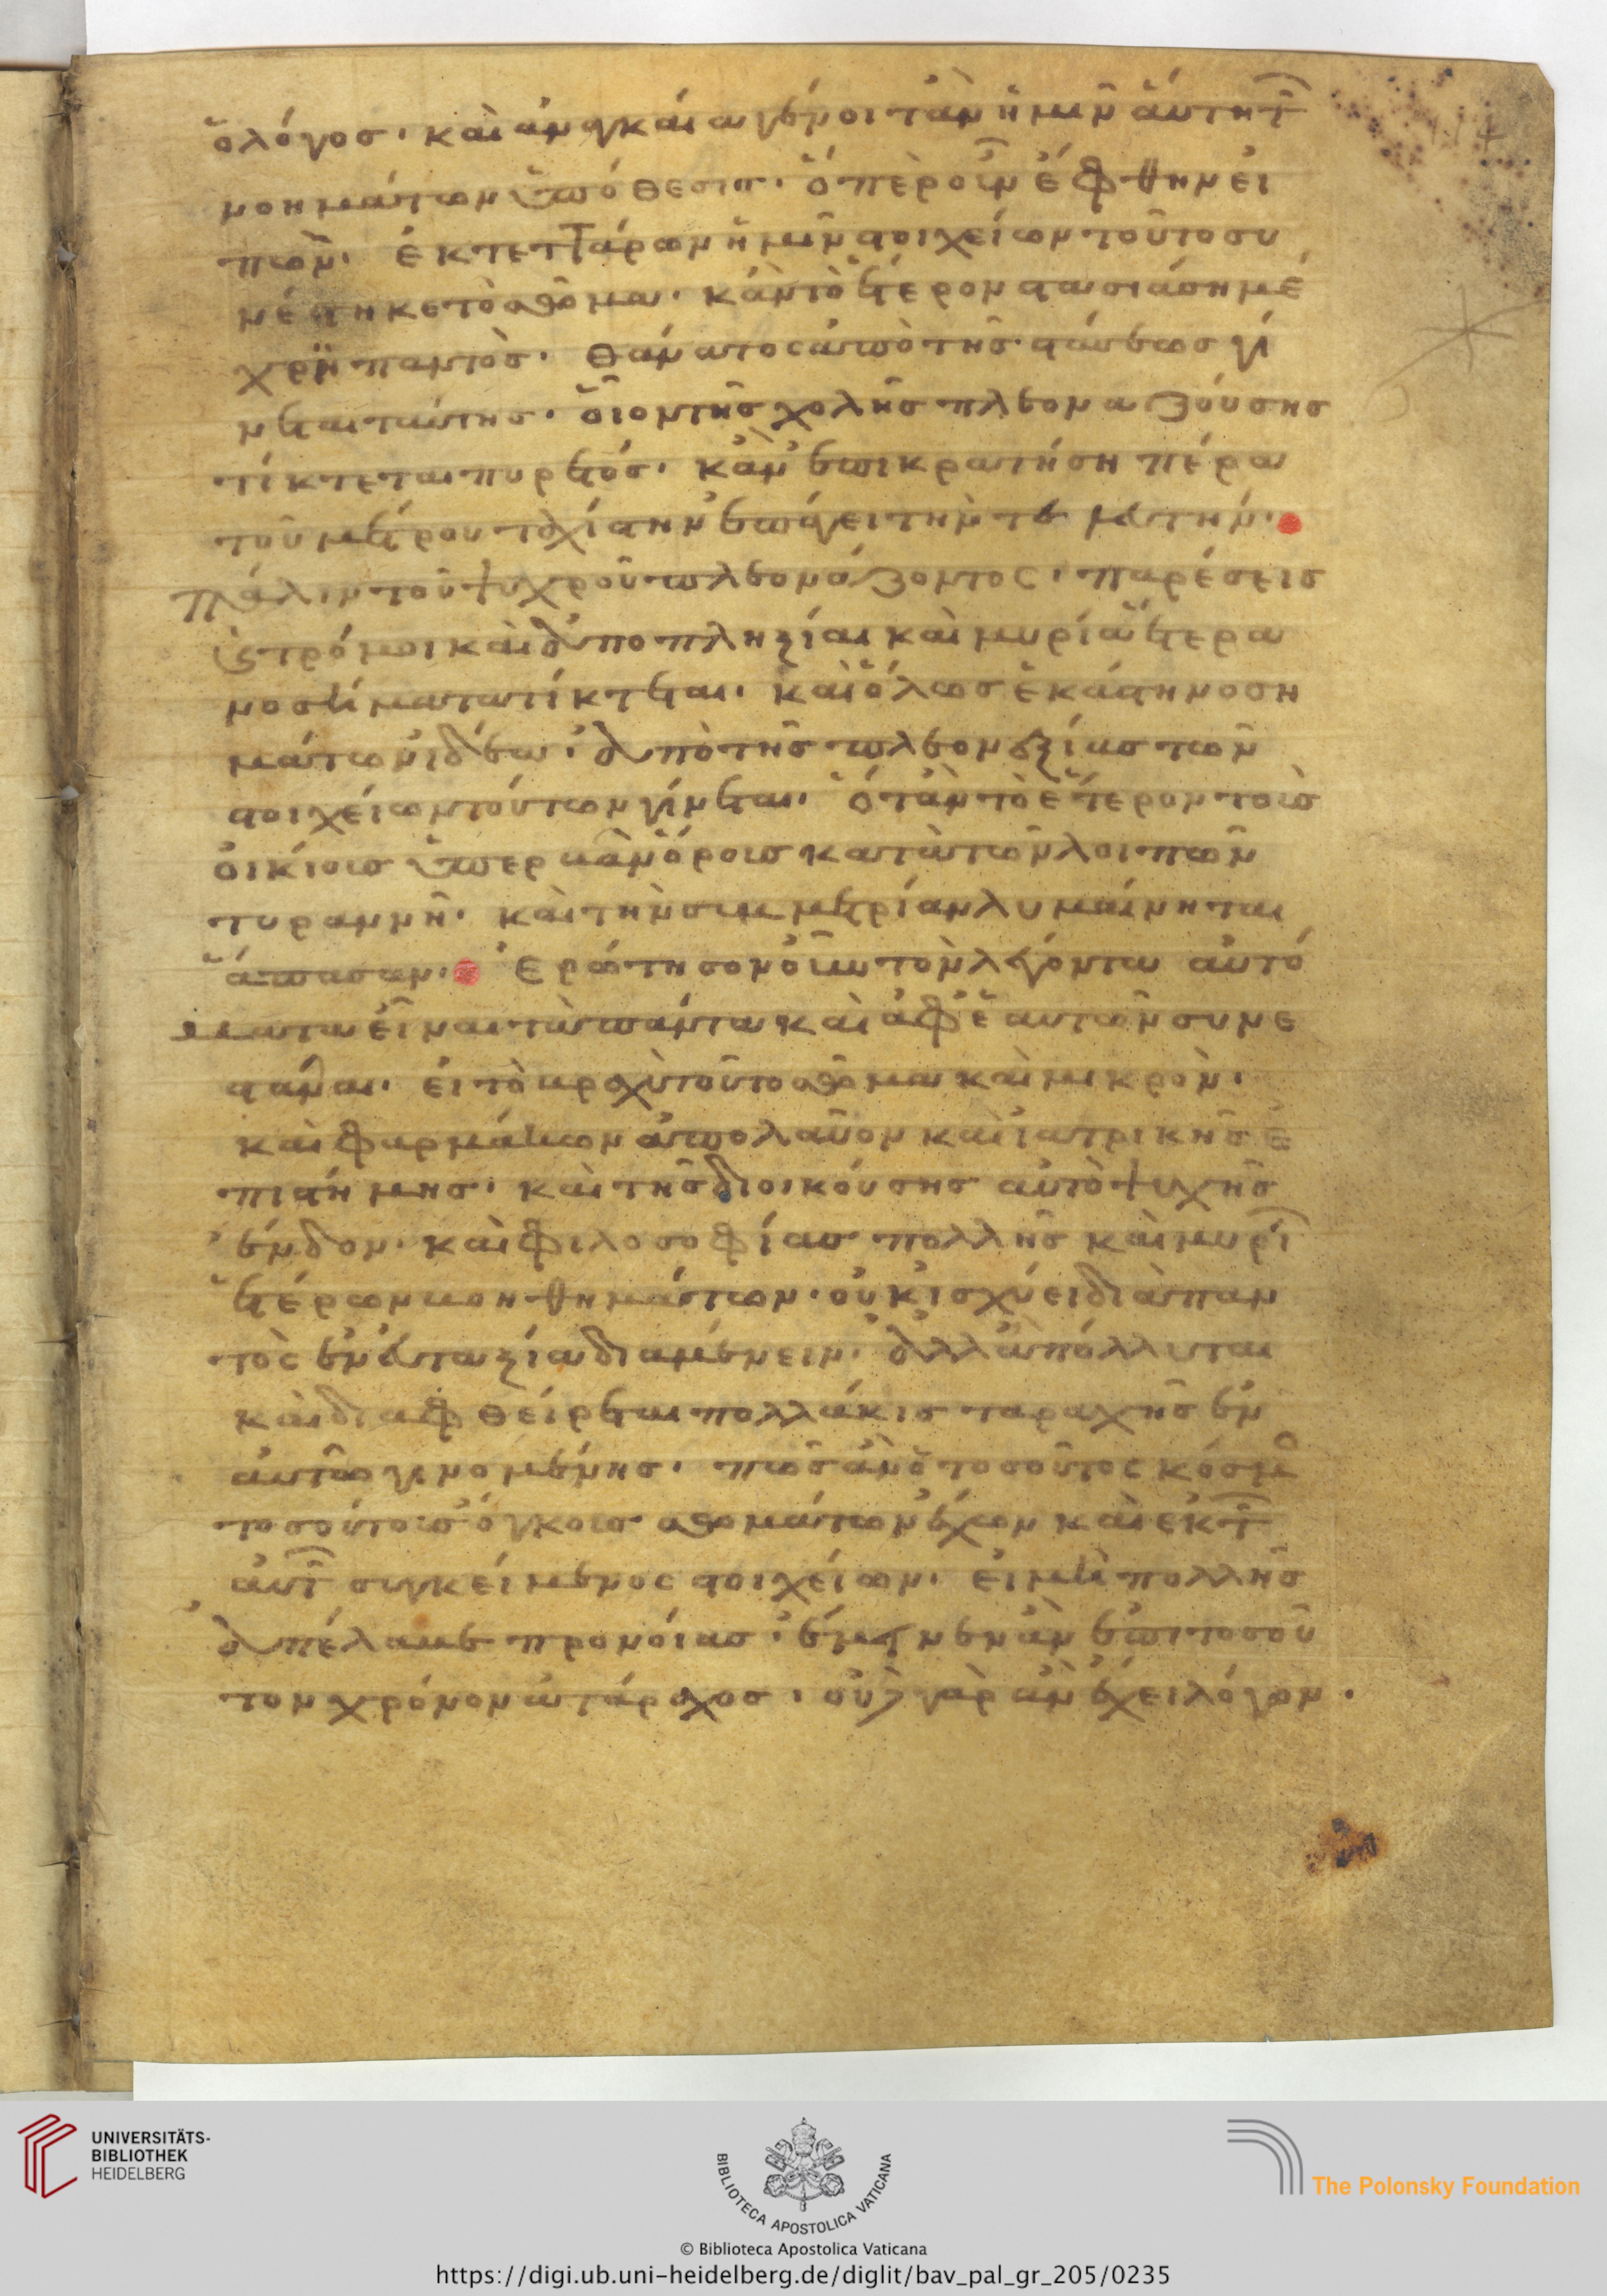 ὁ λόγος. καὶ ἀναγκαία γένοιτ' ἂν ἡμῖν αὕτη τ
νοημάτων ὑπόθεσις. ὅπερ οὖν ἔφθην εἰ
πών. ἐκ τεττάρων ἡμῖν στοιχείων τοῦτο συ
νέστηκε τὸ σῶμα. κἂν τὸ ἕτερον στασιάσῃ μέ
χρι παντὸς. θάνατος ἀπὸ τῆς στάσεως γί
νεται ταύτης. οἷον τῆς χολῆς πλεοναζούσης
τίκτεται πυρετός. κἂν ἐπικρατήσῃ πέρα
τοῦ μέτρου ταχίστην ἐπάγει τὴν τελευτήν.
πάλιν τοῦ ψυχροῦ πλεονάζοντος. παρέσεις
καὶ τρόμοι καὶ ἀποπληξίαι καὶ μυρία ἕτερα
νοσήματα τίκτεται. καὶ ὅλως ἑκάστη νοση
μάτων ἰδέα. ἀπὸ τῆς πλεονεξίας τῶν
στοιχείων τούτων γίνεται. ὅταν τὸ ἕτερον τοῖς
οἰκίοις ὑπερβὰν ὅροις κατὰ τῶν λοιπῶν
τυραννῇ. καὶ τὴν συμμετρίαν λυμαίνηται
ἅπασαν. Ἐρώτησον οὖν τὸν λέγοντα αὐτό
ματα εἶναι τὰ πάντα καὶ ἀφ' ἑαυτῶν συνε
στάναι. εἰ τὸ βραχὺ τοῦτο σῶμα καὶ μικρὸν.
καὶ φαρμάκων ἀπολαῦον καὶ ἰατρικῆς ἐ
πιστήμης. καὶ τῆς διοικούσης αὐτὸ ψυχῆς
ἔνδον. καὶ φιλοσοφίας πολλῆς καὶ μυρί
ἑτέρων βοηθημάτων. οὐκ ἰσχύει διὰ παν
τὸς ἐν εὐταξία διαμένειν. ἀλλ' ἀπόλλυται
καὶ διαφθείρεται πολλάκις ταραχῆς ἐν
αὐτῶ γενομένης. πῶς ἂν ὁ τοσοῦτος κόσμ
τοσούτοις ὄγκοις σωμάτων ἔχων καὶ ἐκ τ
αὐτ συγκείμενος στοιχείων. εἰ μὴ πολλῆς
ἀπέλαυε προνοίας. ἔμεινεν ἂν ἐπὶ τοσοῦ
τον χρόνον ἀτάραχος. οὐδὲ γὰρ ἂν ἔχει λόγον.
UNIVERSITÄTS-
BIBLIOTHEK
HEIDELBERG
BIBLIOTECA APOSTOLICA VATICANA
The Polonsky Foundation
© Biblioteca Apostolica Vaticana
https://digi.ub.uni-heidelberg.de/diglit/bav_pal_gr_205/0235